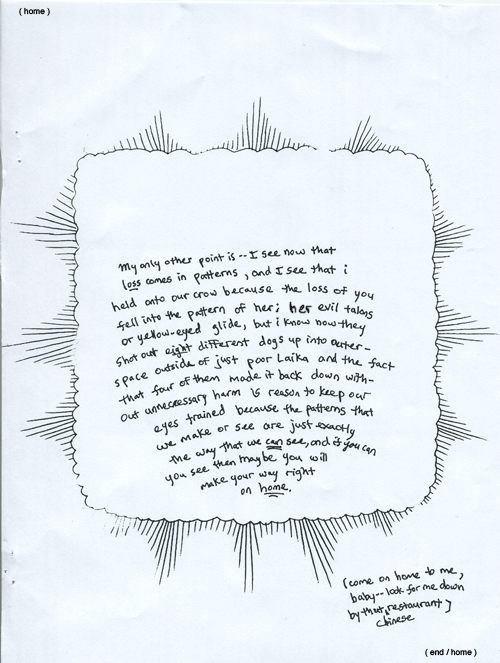 ( home )
My only other point is -- I see now that
loss comes in patterns, and I see that i
held onto our crow because the loss of you
fell into the pattern of her; her evil talons
or yellow-eyed glide, but i know now they
shot out eight different dogs up into outer-
space outside of just poor Laika and the fact
that four of them made it back down with-
out unnecessary harm is reason to keep our
eyes trained because the patterns that
we make or see are just exactly
the way that we can see, and if you can
you see then maybe you will
make your way right
on home.
(come on home to me,
baby -- look for me down
by that Chinese restaurant)
( end / home )